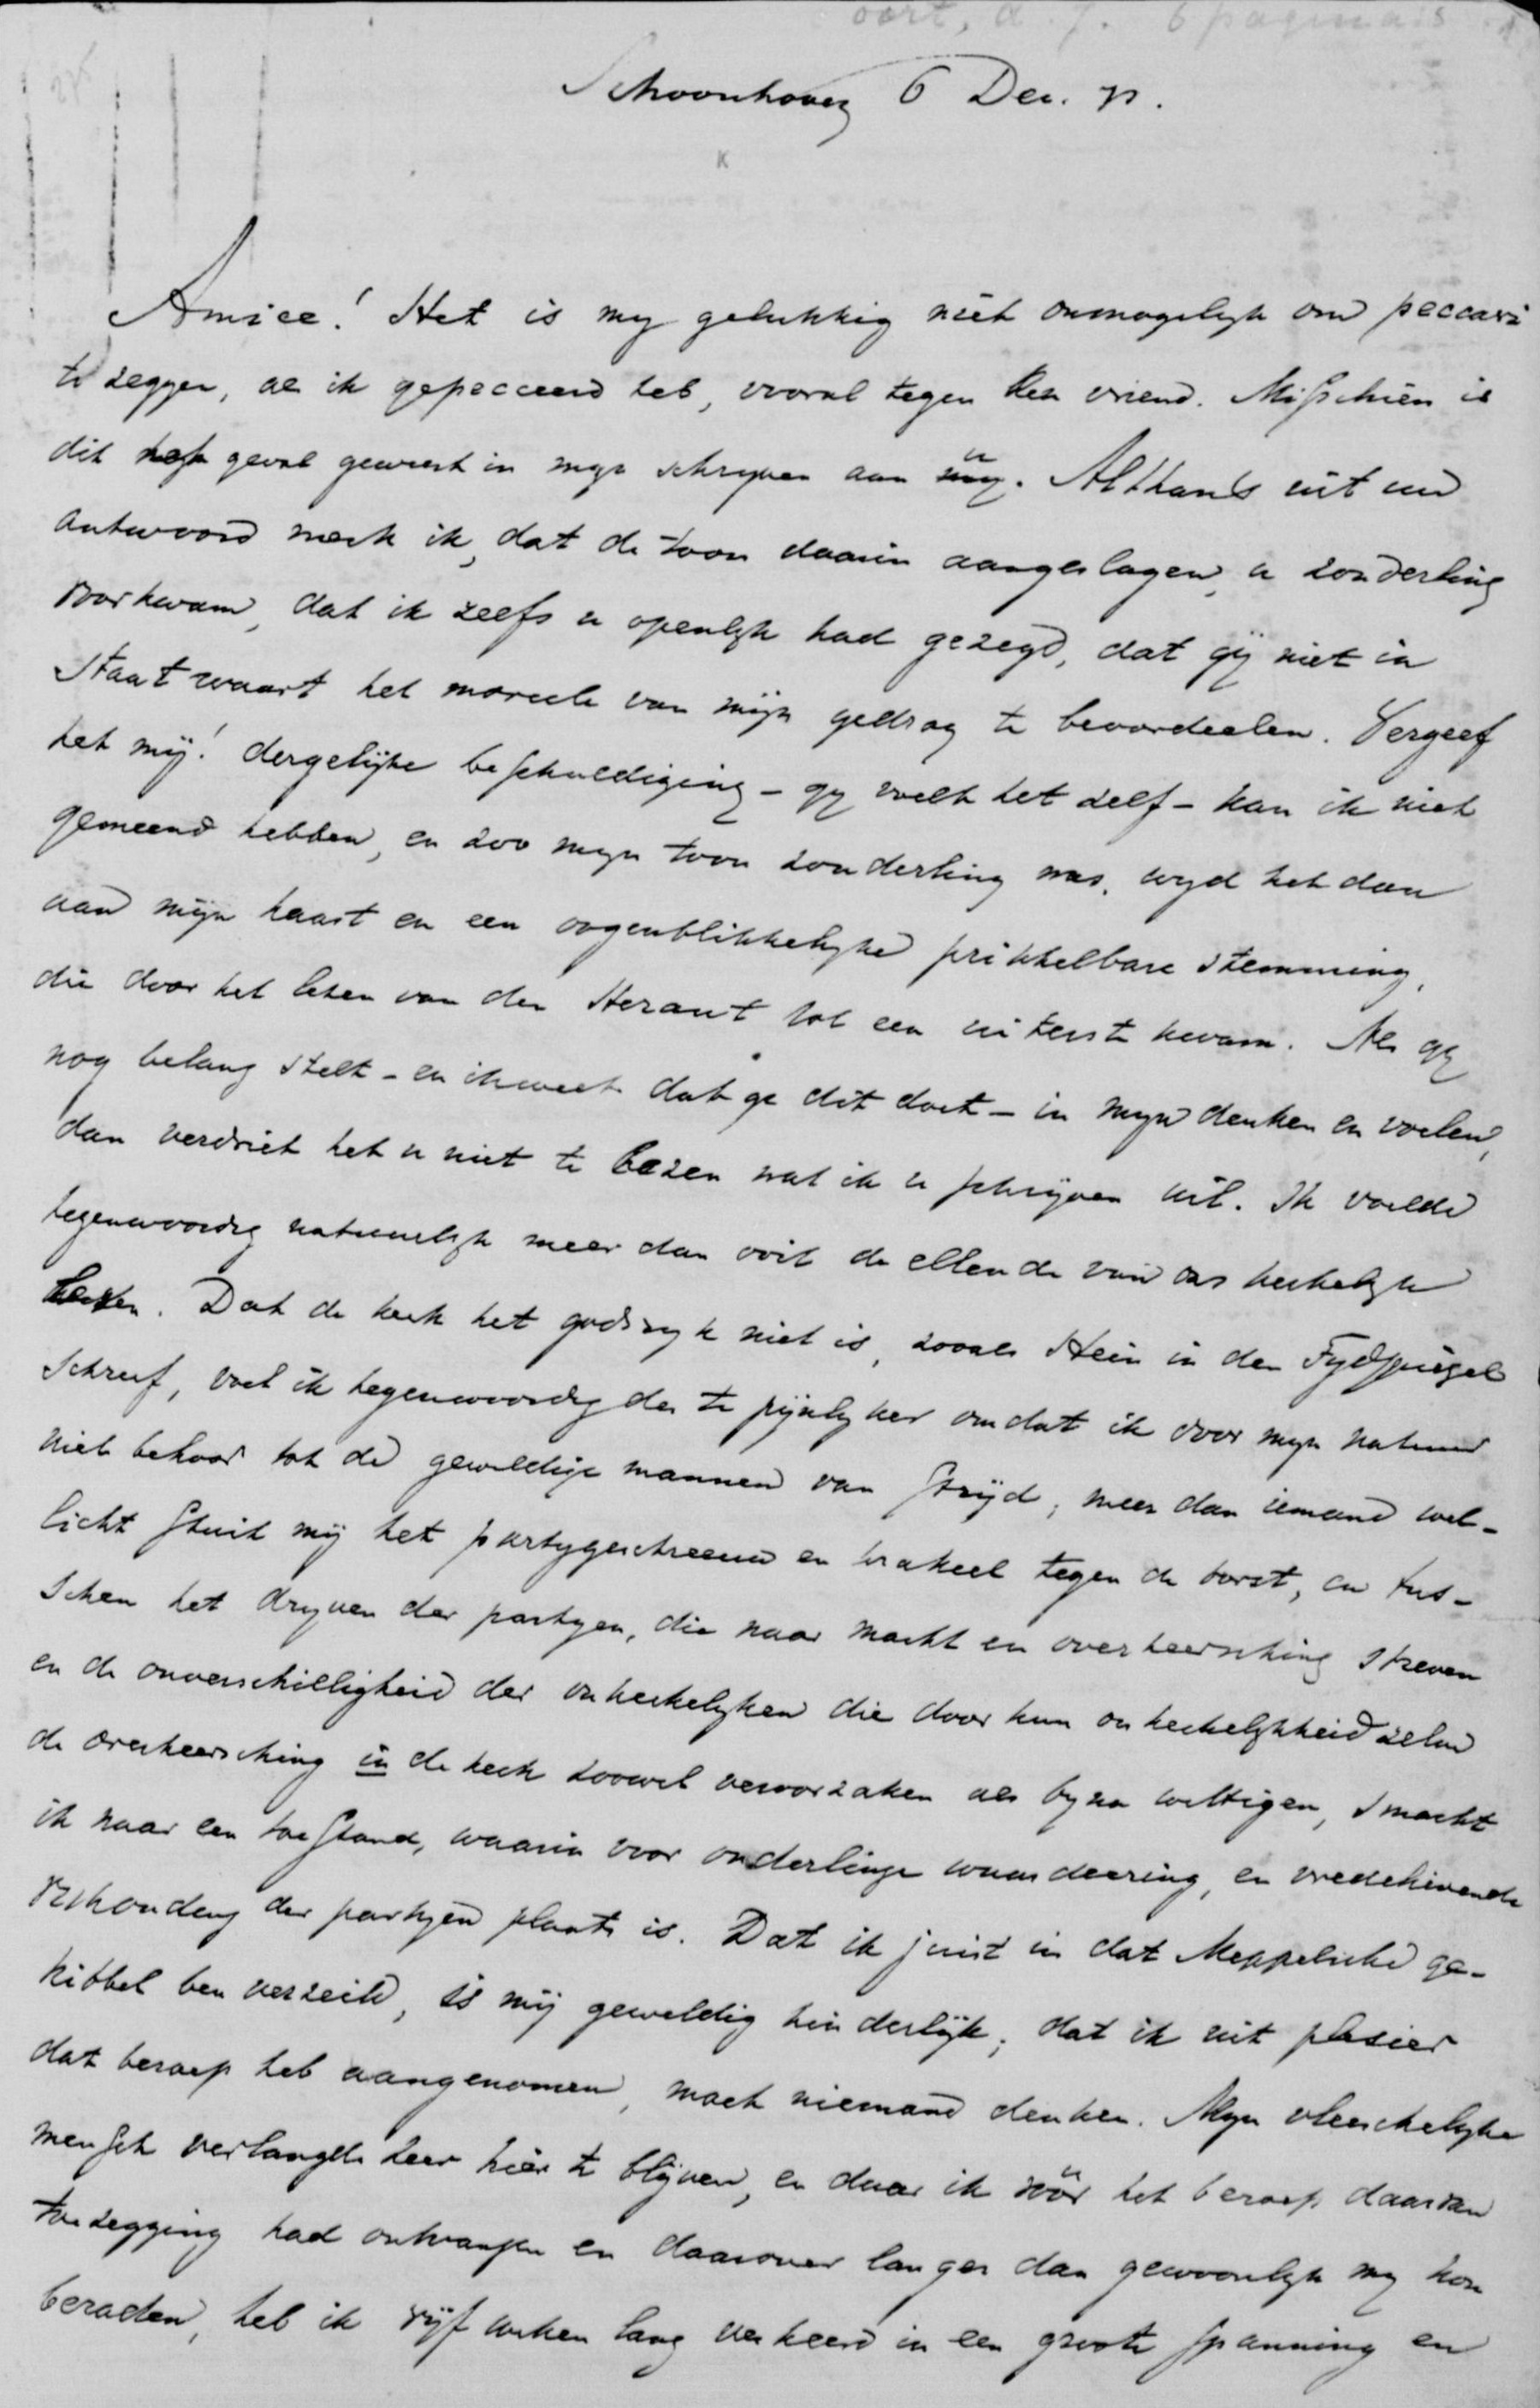 oort, d. J. 6 pagina's
Schoonhoven 6 Dec. 71.
Amice! Het is my gelukkig niet onmogelyk om peccavi
te zeggen, als ik gepecceerd heb, vooral tegen een vriend. Misschien is
dit het geval geweest in myn schryven aan u. Althans uit uw
antwoord merk ik, dat de toon daarin aangeslagen, u zonderling
voorkwam, dat ik zelfs u openlyk had gezegd, dat gij niet in
staat waart het moreele van mijn gedrag te beoordeelen. Vergeef
het mij! dergelijke beschuldiging - gy voelt het zelf - kan ik niet
gemeend hebben, en zoo myn toon zonderling was, wyd het dan
aan mijn haast en een oogenblikkelyke prikkelbare stemming,
die door het lezen van den Heraut tot een uiterste kwam. Als gy
nog belang stelt - en ik weet dat ge dit doet - in myn denken en voelen,
dan verdriet het u niet te lezen wat ik u schrijven wil. Ik voelde
tegenwoordig natuurlyk meer dan ooit de ellende van ons kerkelyk
leven. Dat de kerk het godsryk niet is, zooals Hein in den Tydspiegel
schreef, voel ik tegenwoordig des te pijnlyker omdat ik door myn natuur
niet behoor tot de geweldige mannen van strijd; meer dan iemand wel-
licht stuit mij het partygeschreeuw en krakeel tegen de borst, en tus-
schen het dryven der partyen, die naar macht en overheersching streven
en de onverschilligheid der onkerkelyken die door hun onkerkelykheid zelve
de overheersching in de kerk zoowel veroorzaken als byna wettigen, smacht
ik naar een toestand, waarin voor onderlinge waardeering, en vredelievende
verhouding der partyen plaats is. Dat ik juist in dat Meppelsche ge-
kibbel ben verzeild, is mij geweldig hinderlijk; dat ik uit plezier
dat beroep heb aangenomen, moet niemand denken. Myn vleeschelyke
mensch verlangde zeer hier te blijven, en daar ik vóór het beroep daarvan
toezegging had ontvangen en daarover langer dan gewoonlyk my kon
beraden, heb ik vijf weken lang verkeerd in een groote spanning en